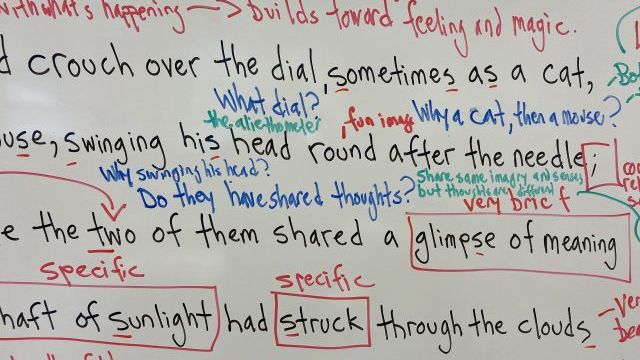 what's happening → builds toward feeling and magic.
crouch over the dial, sometimes as a cat,
What dial? Why a cat, then a mouse?
the alethiometer fun image
use, swinging his head round after the needle;
Why swinging his head? Share same imagry and senses
Do they have shared thoughts? but thoughts are different
very brief
e the two of them shared a glimpse of meaning
specific specific
haft of sunlight had struck through the clouds